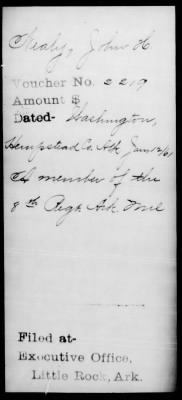 Nealy, John H
Voucher No. 2219
Amount $
Dated- Washington,
Hempstead Co. Ark Jan 12/61
A member of the
8th Regt. Ark Mil
Filed at-
Executive Office,
Little Rock, Ark.